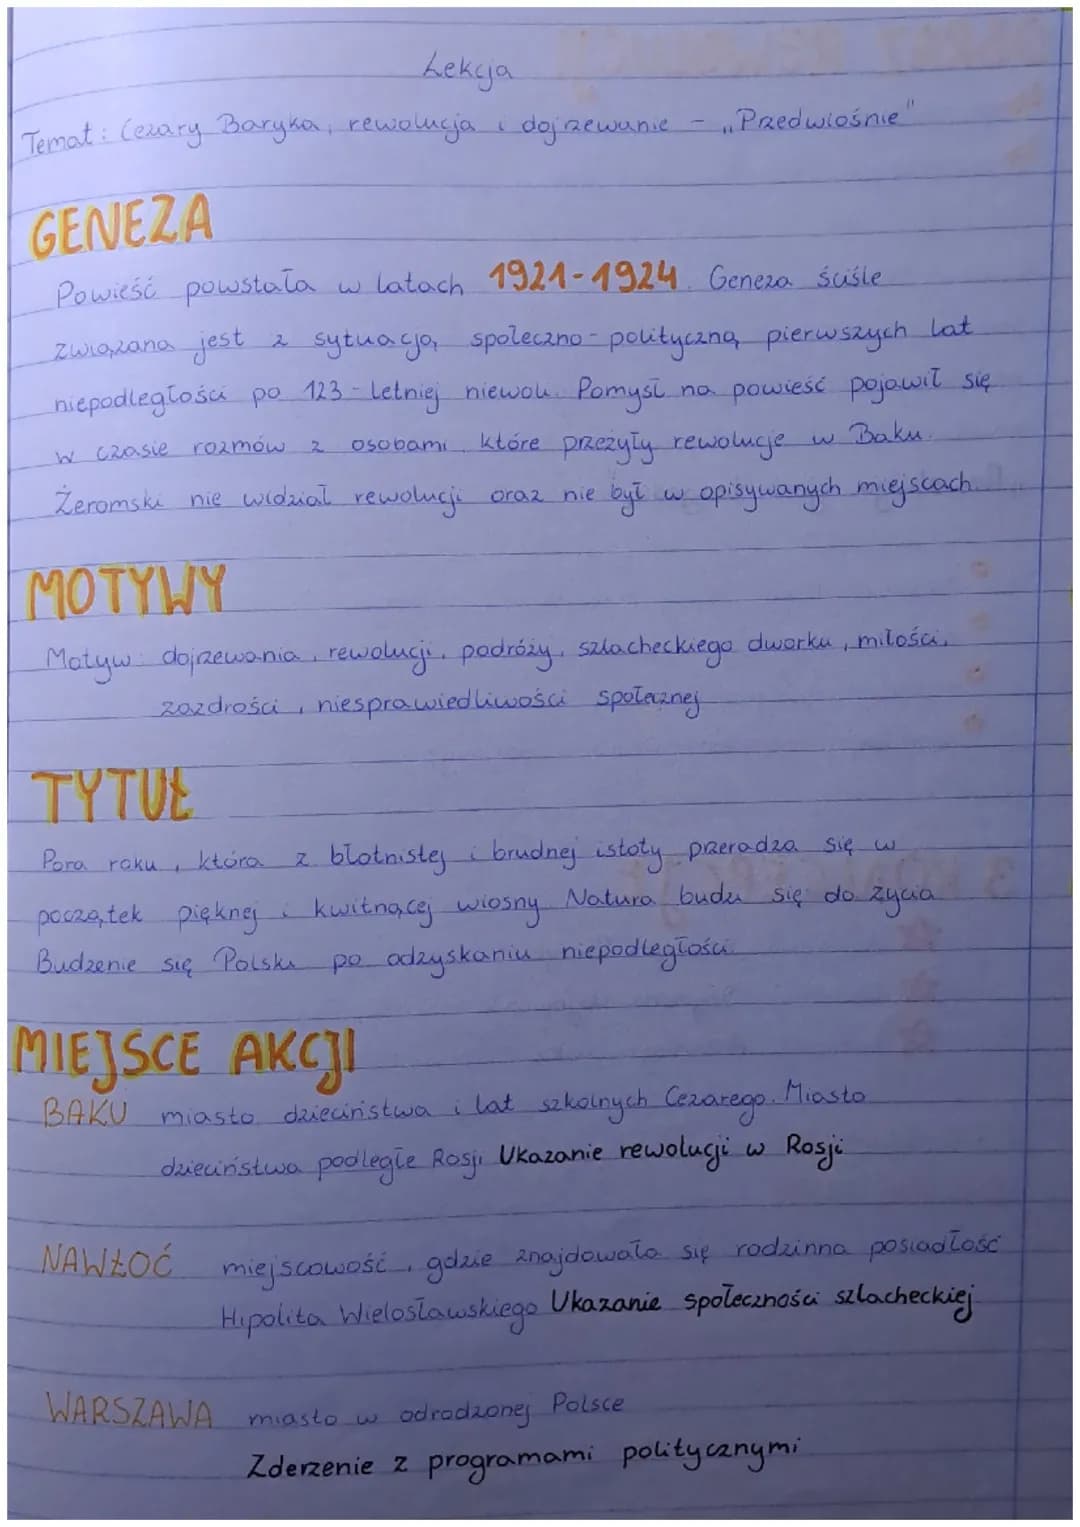 Lekcja
Temat: Cezary Baryka, rewolucja i dojrzewanie - „Przedwiośnie"
GENEZA
Powieść powstała w latach 1921-1924. Geneza ściśle
związana jest z sytuacją społeczno-polityczną pierwszych lat
niepodległości po 123-letniej niewoli. Pomysł na powieść pojawił się
w czasie rozmów z osobami, które przeżyły rewolucje w Baku.
Żeromski nie widział rewolucji oraz nie był w opisywanych miejscach.
MOTYWY
Motyw: dojrzewania, rewolucji, podróży, szlacheckiego dworku, miłości,
zazdrości, niesprawiedliwości społecznej
TYTUŁ
Pora roku, która z błotnistej i brudnej istoty przeradza się w
początek pięknej i kwitnącej wiosny. Natura budzi się do życia.
Budzenie się Polski po odzyskaniu niepodległości.
MIEJSCE AKCJI
BAKU miasto dzieciństwa i lat szkolnych Cezarego. Miasto
dzieciństwa podległe Rosji. Ukazanie rewolucji w Rosji
NAWŁOĆ miejscowość, gdzie znajdowała się rodzinna posiadłość
Hipolita Wielosławskiego. Ukazanie społeczności szlacheckiej
WARSZAWA miasto w odrodzonej Polsce
Zderzenie z programami politycznymi